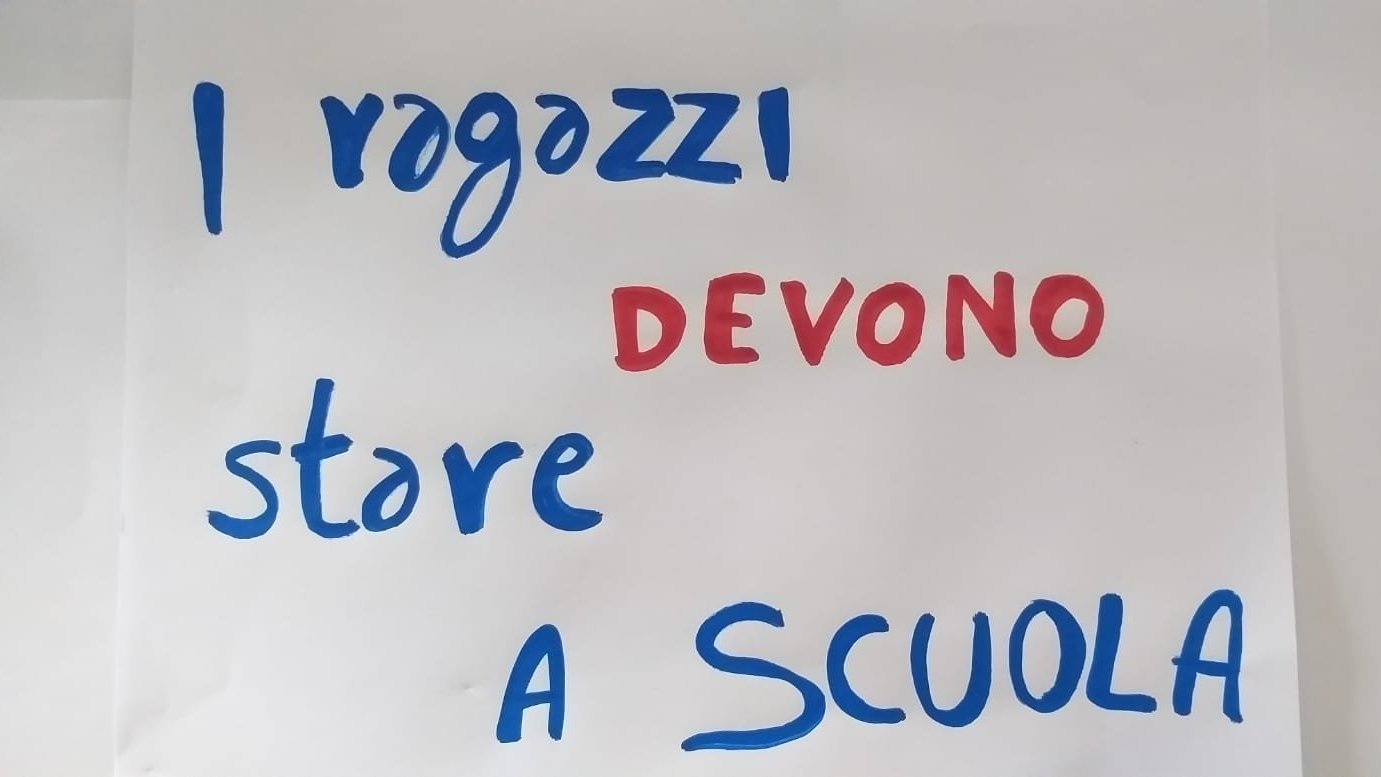 I ragazzi
DEVONO
stare
A SCUOLA